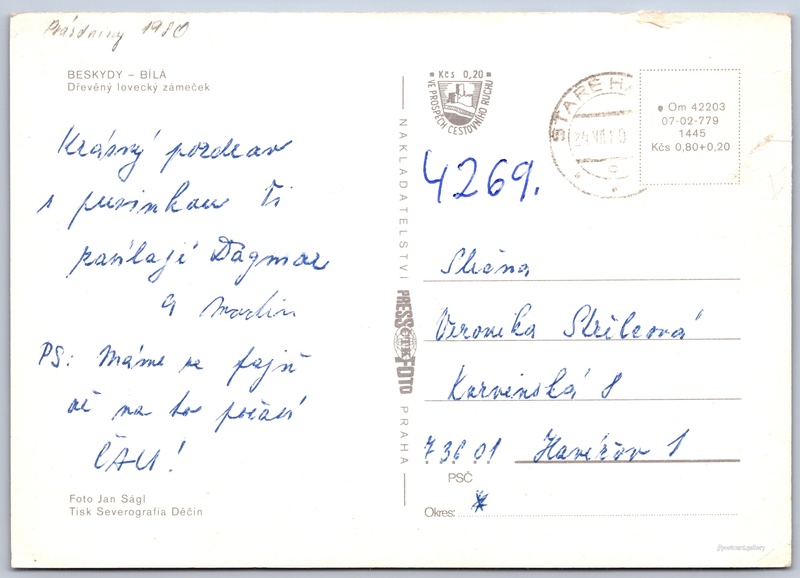 Prázdniny 1980
BESKYDY – BÍLÁ
Dřevěný lovecký zámeček
Krásný pozdrav
s pusinkou Ti
zasílají Dagmar
a Martin
PS: Máme se fajn
až na to počasí
ČAU!
Foto Jan Ságl
Tisk Severografia Děčín
NAKLADATELSTVÍ PRESSFOTO PRAHA
Kčs 0,20
VE PROSPĚCH CESTOVNÍHO RUCHU
STARÉ HA
Om 42203
07-02-779
1445
Kčs 0,80+0,20
4269.
Slečna
Veronika Střílcová
Karvinská 8
736 01 Havířov 1
PSČ
Okres: